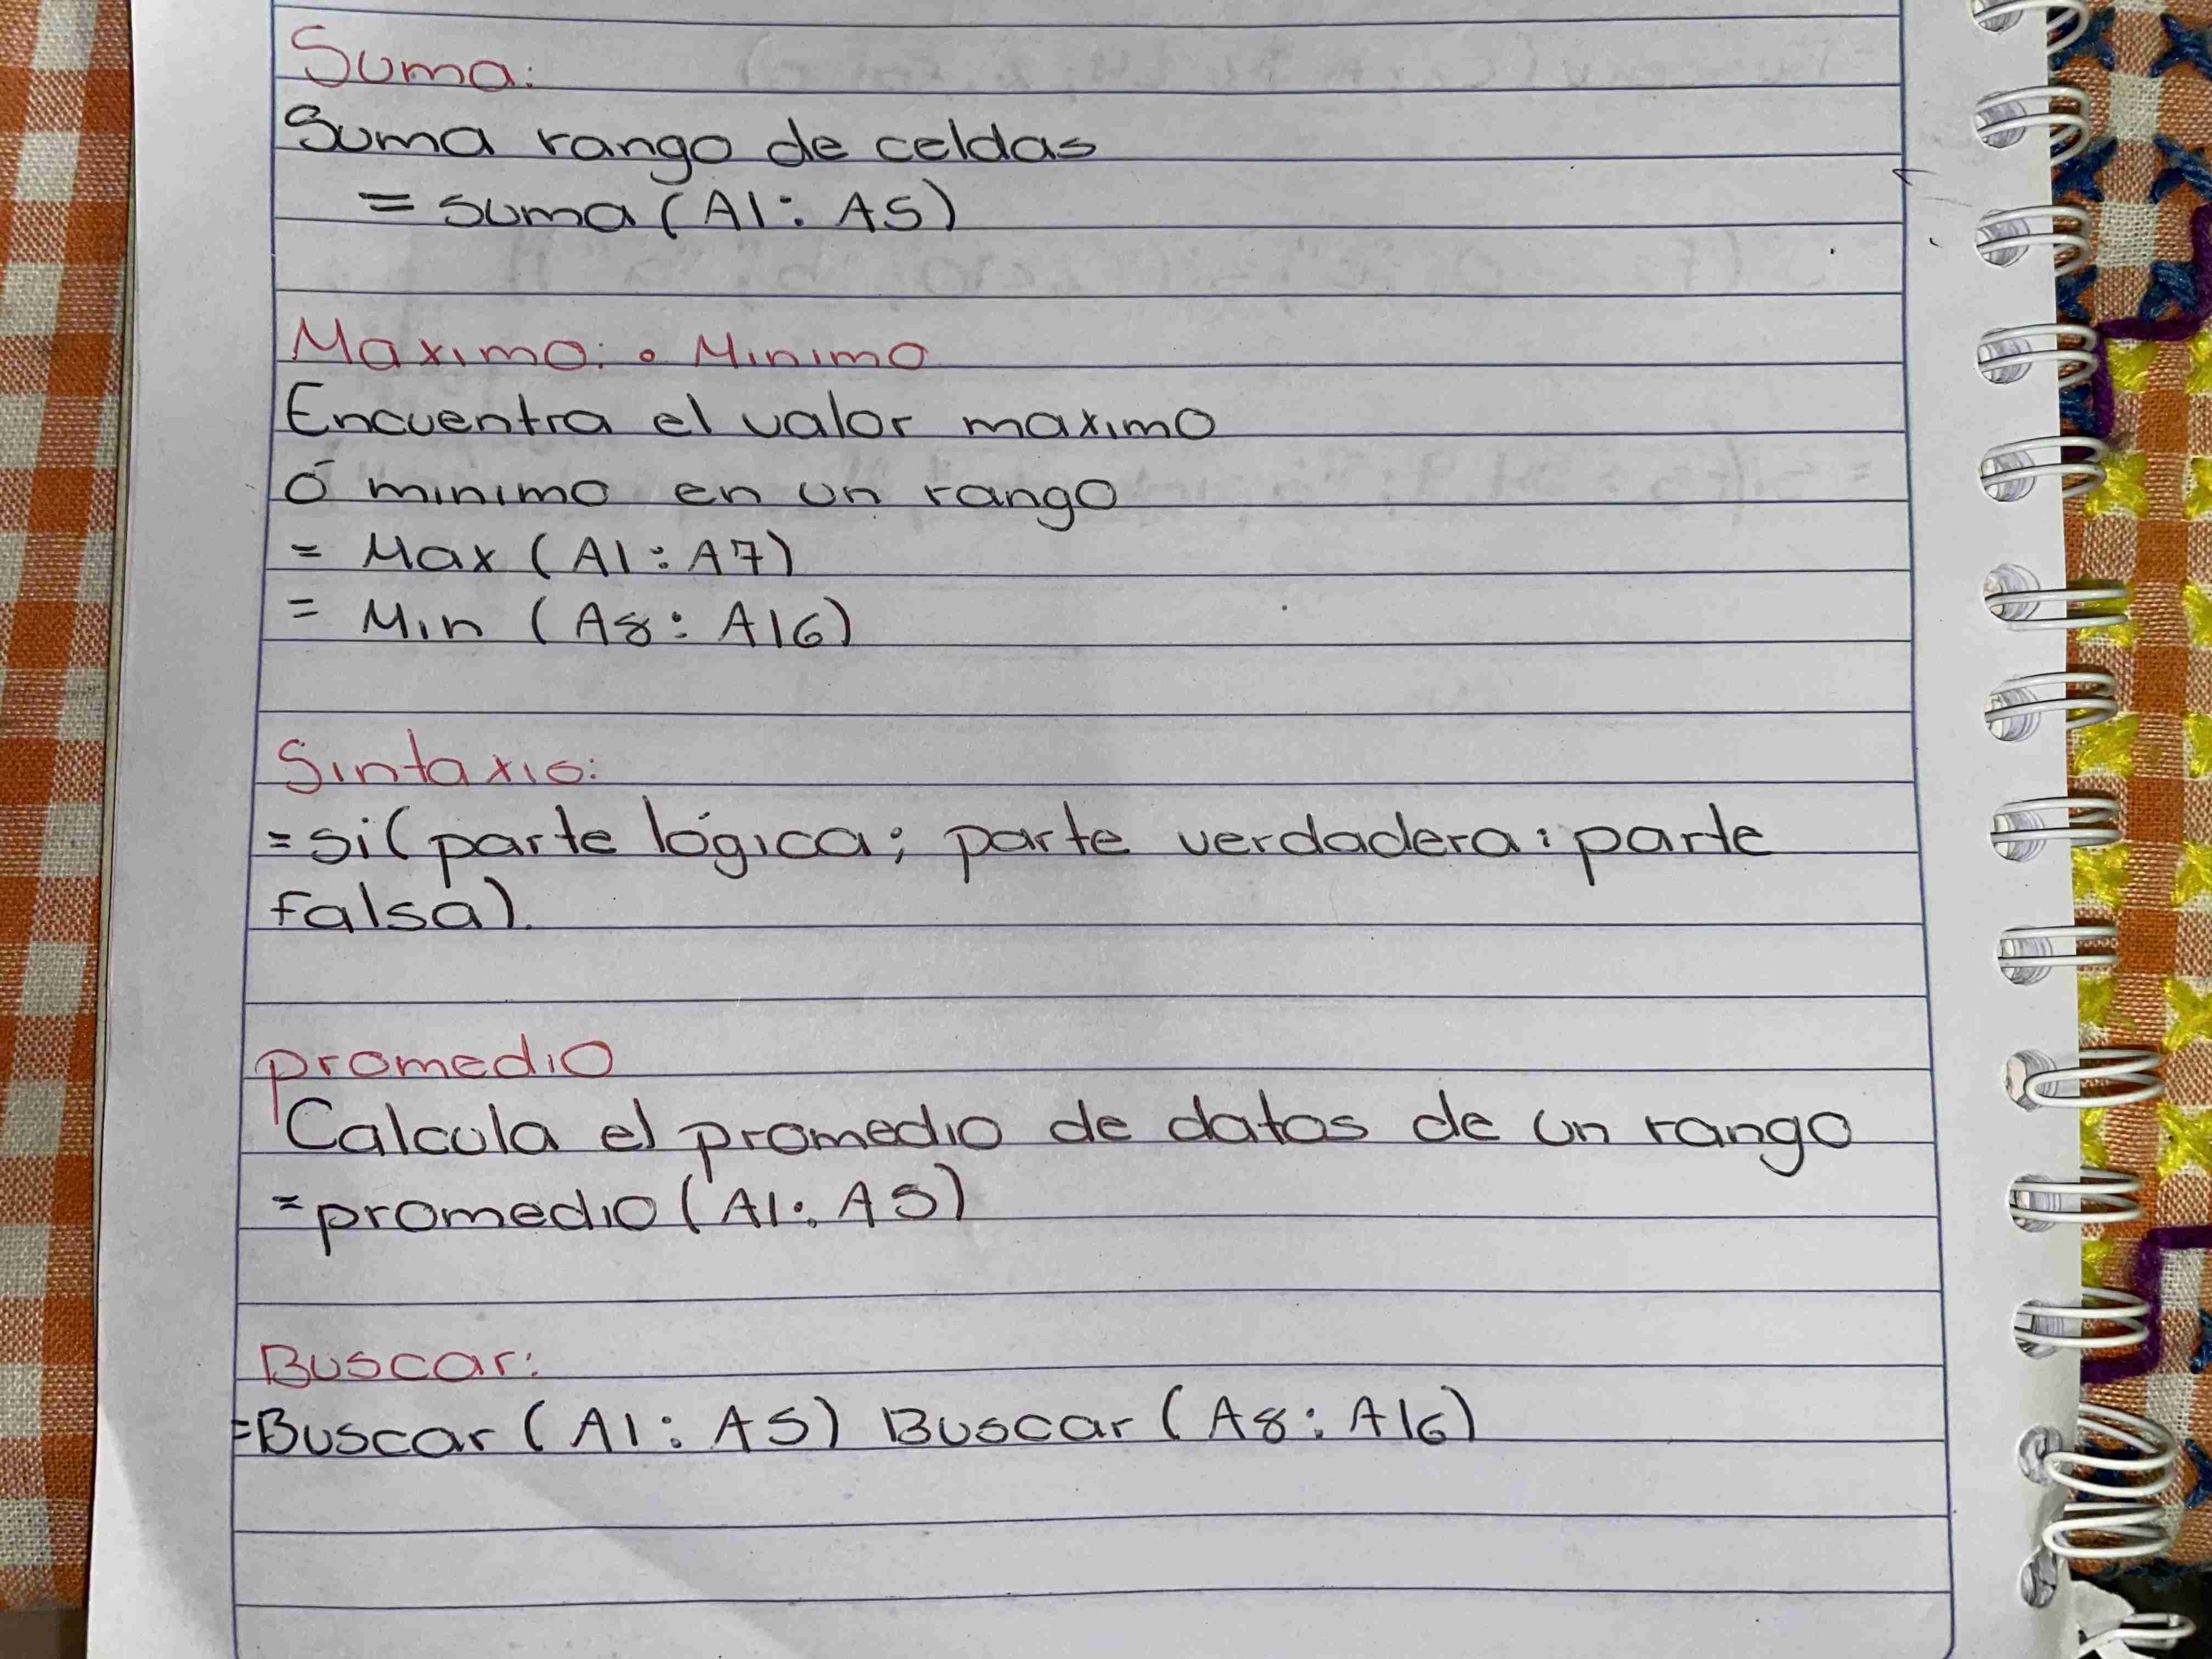 Suma:
Suma rango de celdas
= suma (A1: A5)
Maximo: o Minimo
Encuentra el valor maximo
ó minimo en un rango
= Max (A1: A7)
= Min (A8: A16)
Sintaxis:
=si(parte lógica; parte verdadera: parte
falsa).
promedio
Calcula el promedio de datos de un rango
=promedio (A1: A5)
Buscar:
=Buscar (A1: A5) Buscar (A8: A16)